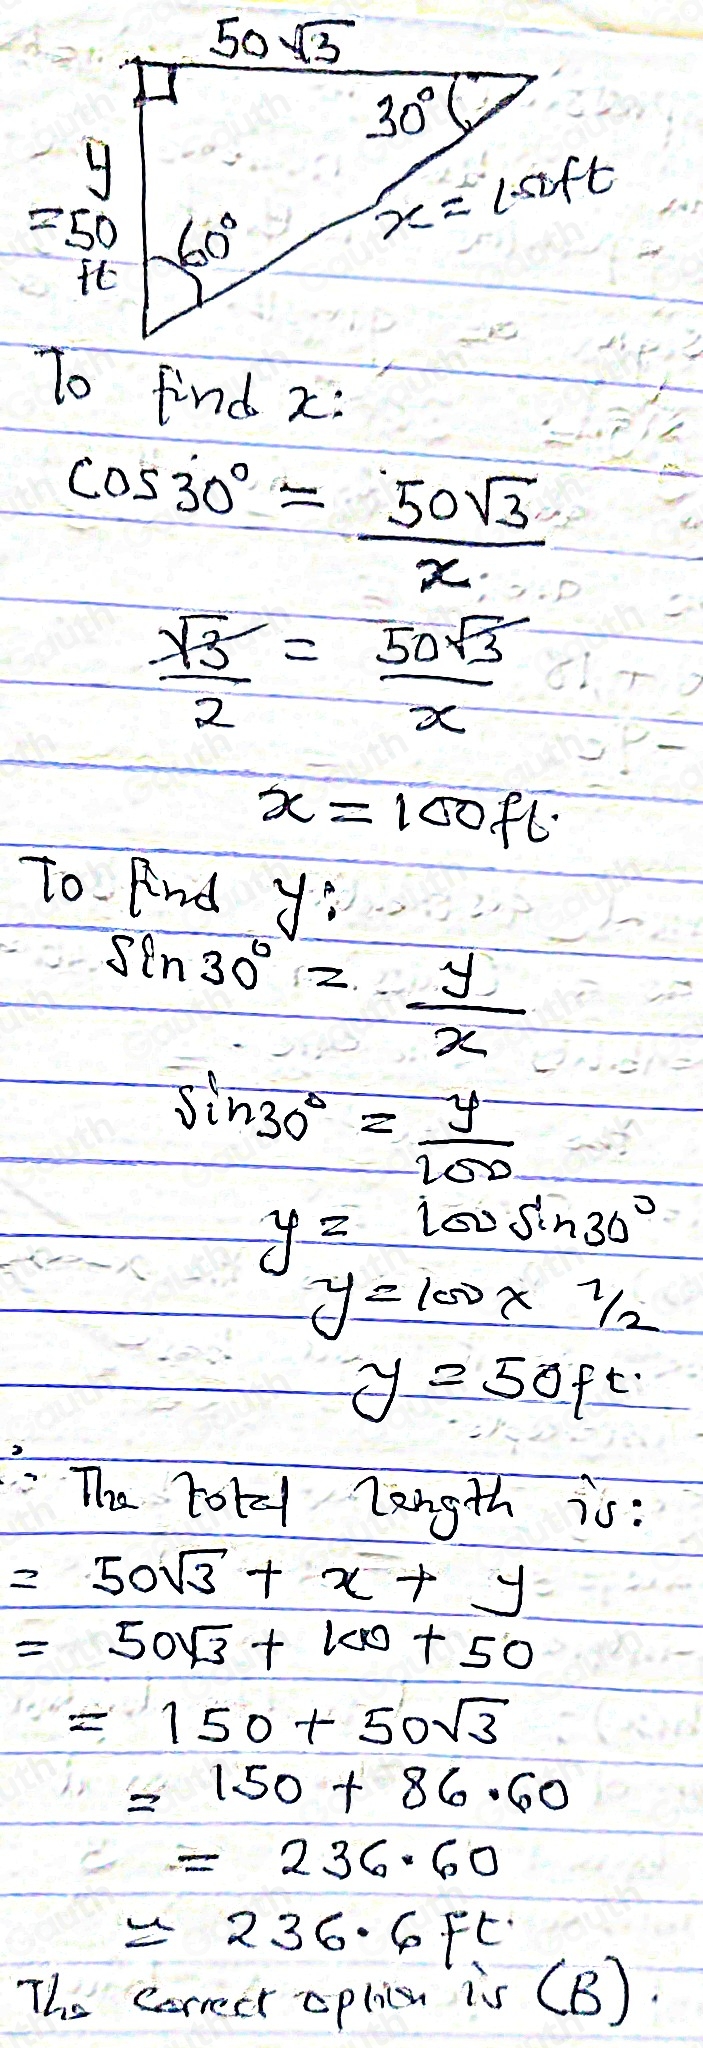 50√3
30°
y
= 50
ft
60°
x = 100ft
To find x:
cos30° = 50√3 / x
√3 / 2 = 50√3 / x
x = 100ft.
To find y:
sin30° = y / x
sin30° = y / 100
y = 100sin30°
y = 100 x 1/2
y = 50ft.
∴ The total length is:
= 50√3 + x + y
= 50√3 + 100 + 50
= 150 + 50√3
= 150 + 86.60
= 236.60
≃ 236.6ft.
The correct option is (B).